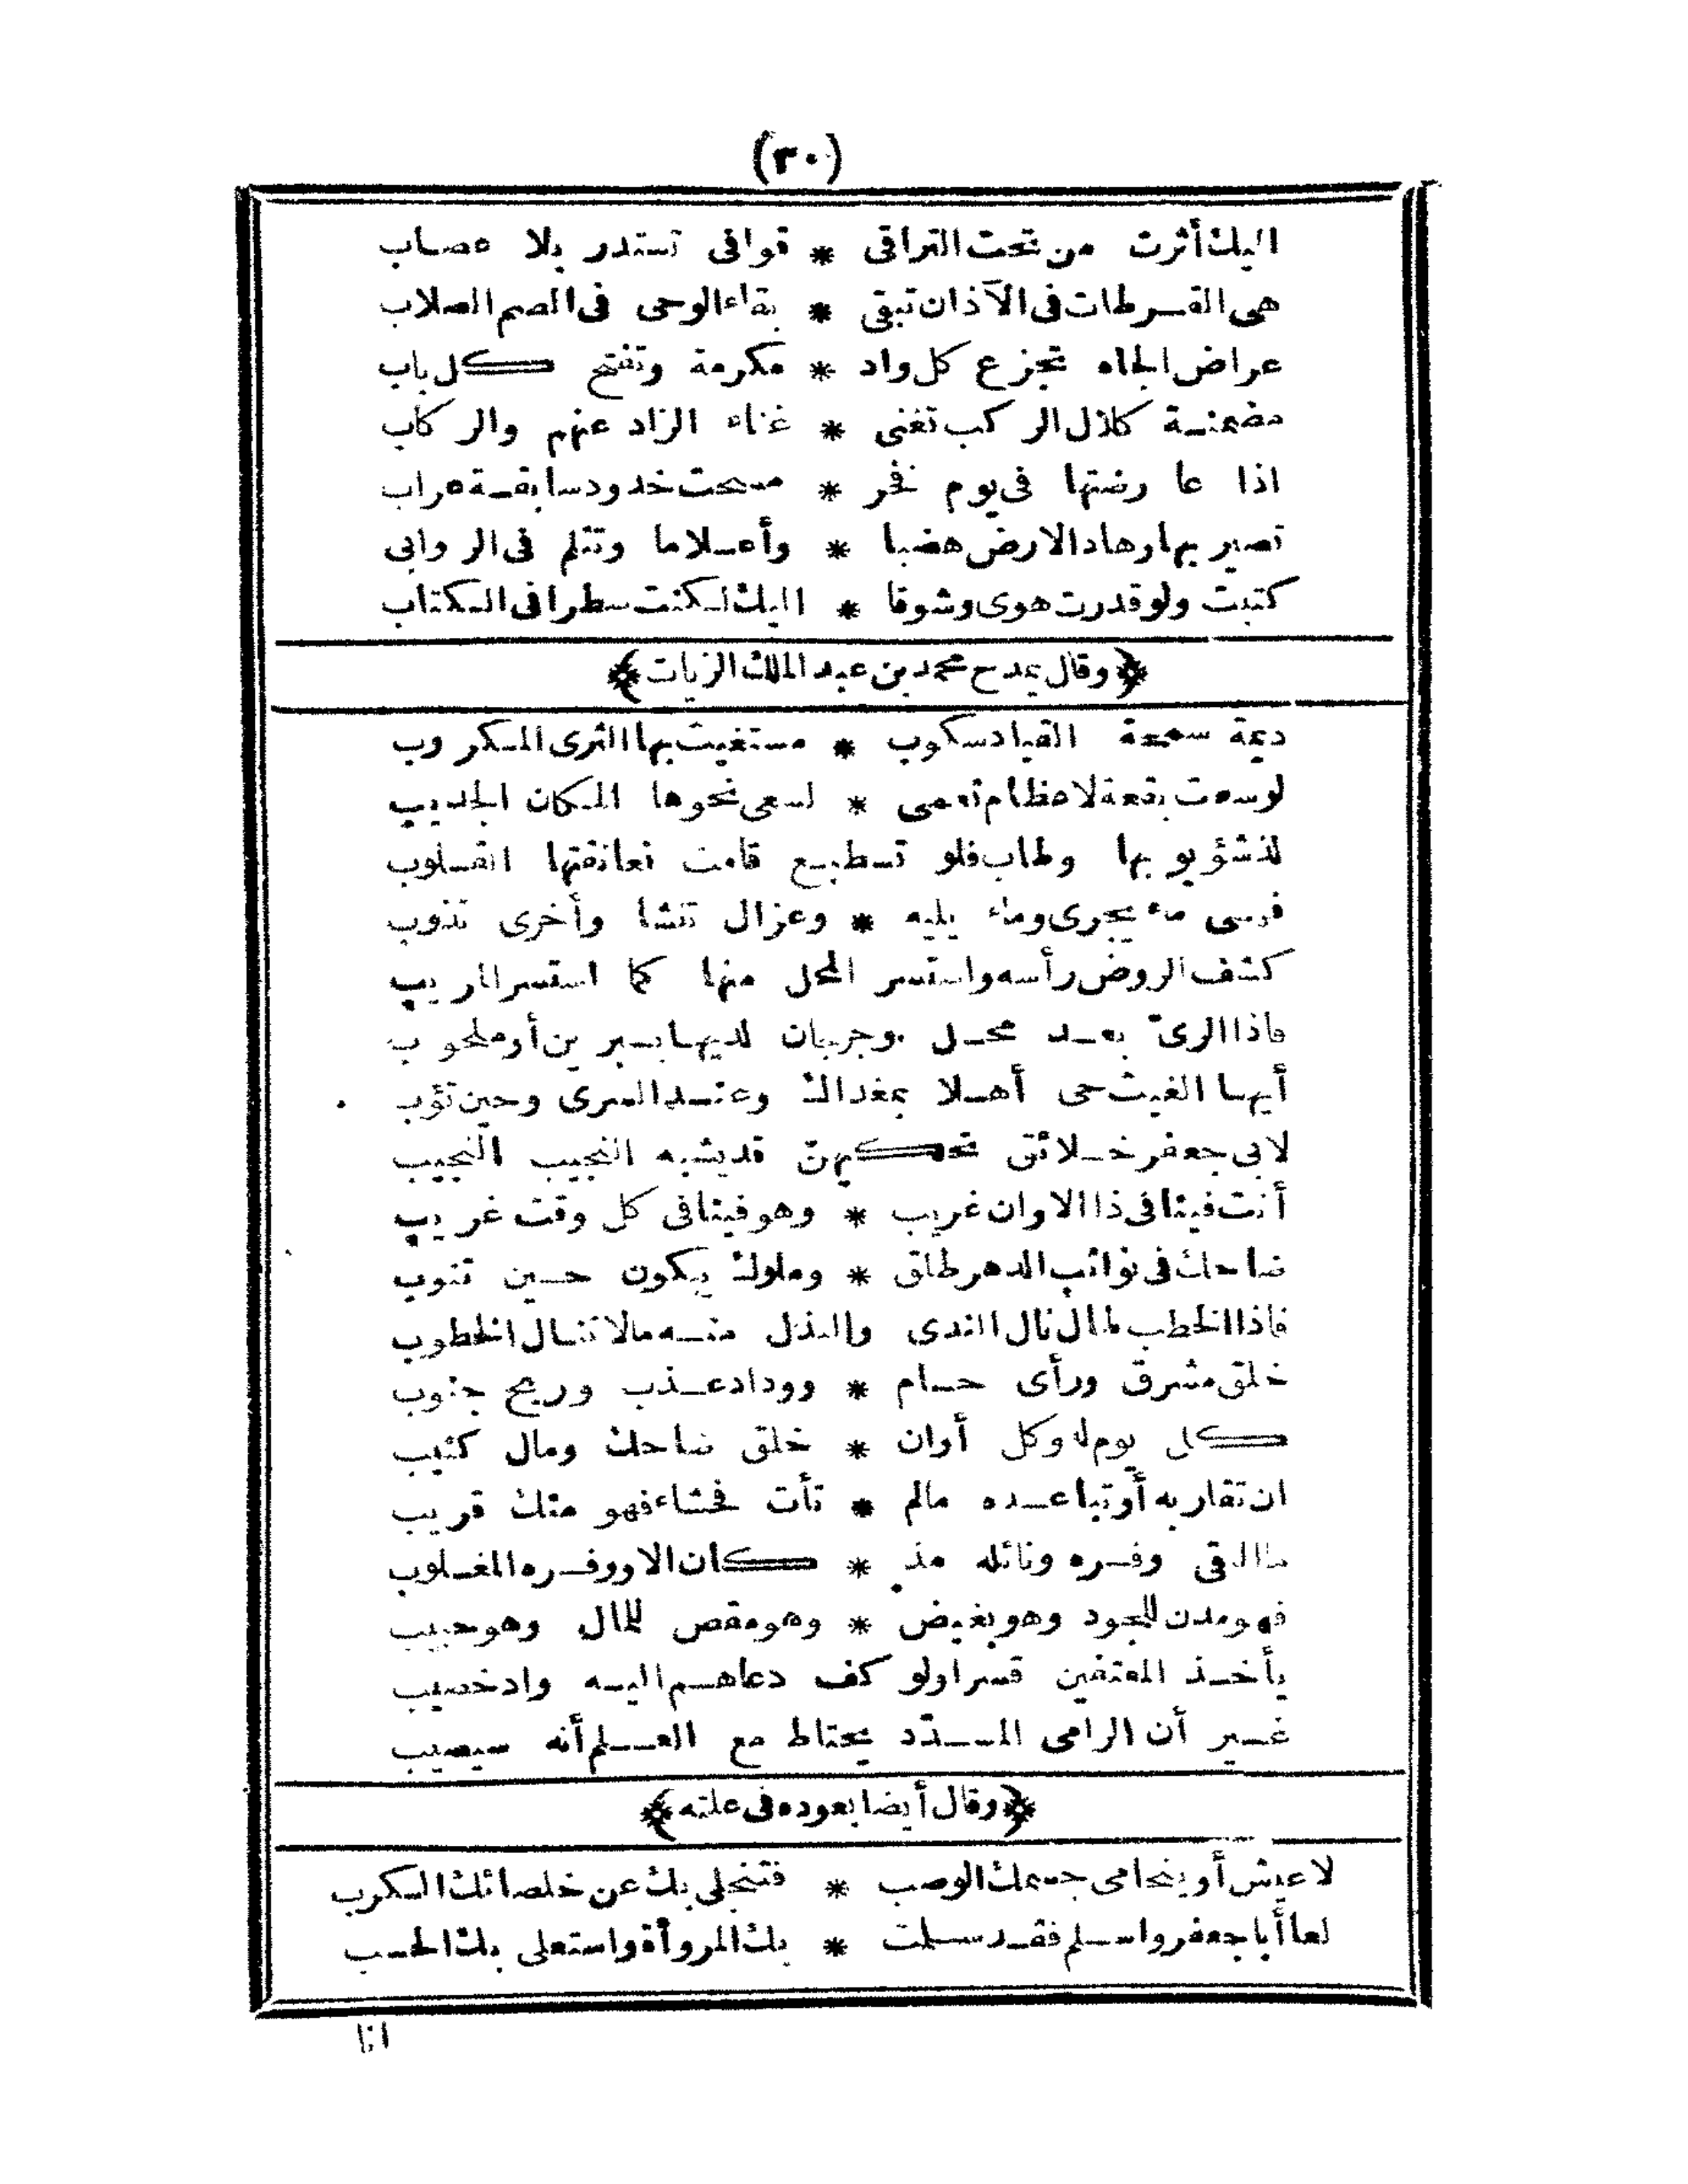 (٣٠)
اليك أثرت من تحت التراقى * قوافى تستدر بلا عصاب
هى القرطات فى الآذان تبقى * بقاء الوحى فى الصم الصلاب
عراض الجاه تجزع كل واد * مكرمة وتفتح كل باب
مضمنة كلال الركب تغنى * غناء الزاد عنهم والركاب
اذا عارضتها فى يوم فخر * مسحت خدود سابقة عراب
تصير بها وهاد الارض هضبا * وأعلاما وتثلم فى الروابى
كتبت ولو قدرت هوى وشوقا * اليك لكنت سطرا فى الكتاب
﴿وقال يمدح محمد بن عبد الملك الزيات﴾
ديمة سمحة القياد سكوب * مستغيث بها الثرى المكروب
لو سعت بقعة لاعظام نعمى * لسعى نحوها المكان الجديب
لذ شؤبوبها وطاب فلو تسطيع قامت فعانقتها القلوب
فهى ماء يجرى وماء يليه * وعزال تنشا وأخرى تذوب
كشف الروض رأسه واستسر المحل منها كما استسر المريب
فاذا الرىّ بعد محل وجرجان لديها يبرين أو ملحوب
أيها الغيث حى أهلا بمغداك وعند السرى وحين تؤب
لابى جعفر خلائق تحكيهنّ قد يشبه النجيب النجيب
أنت فينا فى ذا الاوان غريب * وهو فينا فى كل وقت غريب
ضاحك فى نوائب الدهر طلق * وملوك يبكون حين تنوب
فاذا الخطب طال نال الندى والبذل منه مالا تنال الخطوب
خلق مشرق ورأى حسام * ووداد عذب وريح جنوب
كل يوم له وكل أوان * خلق ضاحك ومال كئيب
ان تقاربه أو تباعده مالم * تأت فحشاء فهو منك قريب
ما التقى وفره ونائله مذ * كان الا ووفره المغلوب
فهو مدن للجود وهو بغيض * وهو مقص للمال وهو حبيب
يأخذ المعتفين قسرا ولو كف دعاهم اليه واد خصيب
غير أن الرامى المسدّد يحتاط مع العلم أنه سيصيب
﴿وقال أيضا يعوده فى علته﴾
لا عيش أو يتحامى جسمك الوصب * فتنجلى بك عن خلصائك الكرب
لعا أبا جعفر واسلم فقد سلمت * بك المروأة واستعلى بك الحسب
انا